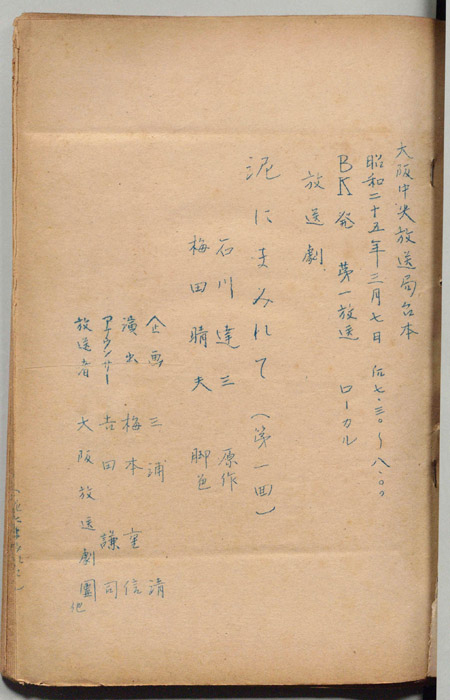 大阪中央放送局台本
昭和二十五年三月七日 后七.三〇〜八.〇〇
BK発 第一放送 ローカル
放送劇
泥にまみれて(第一回)
石川達三 原作
梅田晴夫 脚色
企画 三浦 清
演出 梅本重信
アナウンサー 吉田謙司
放送者 大阪放送劇團他